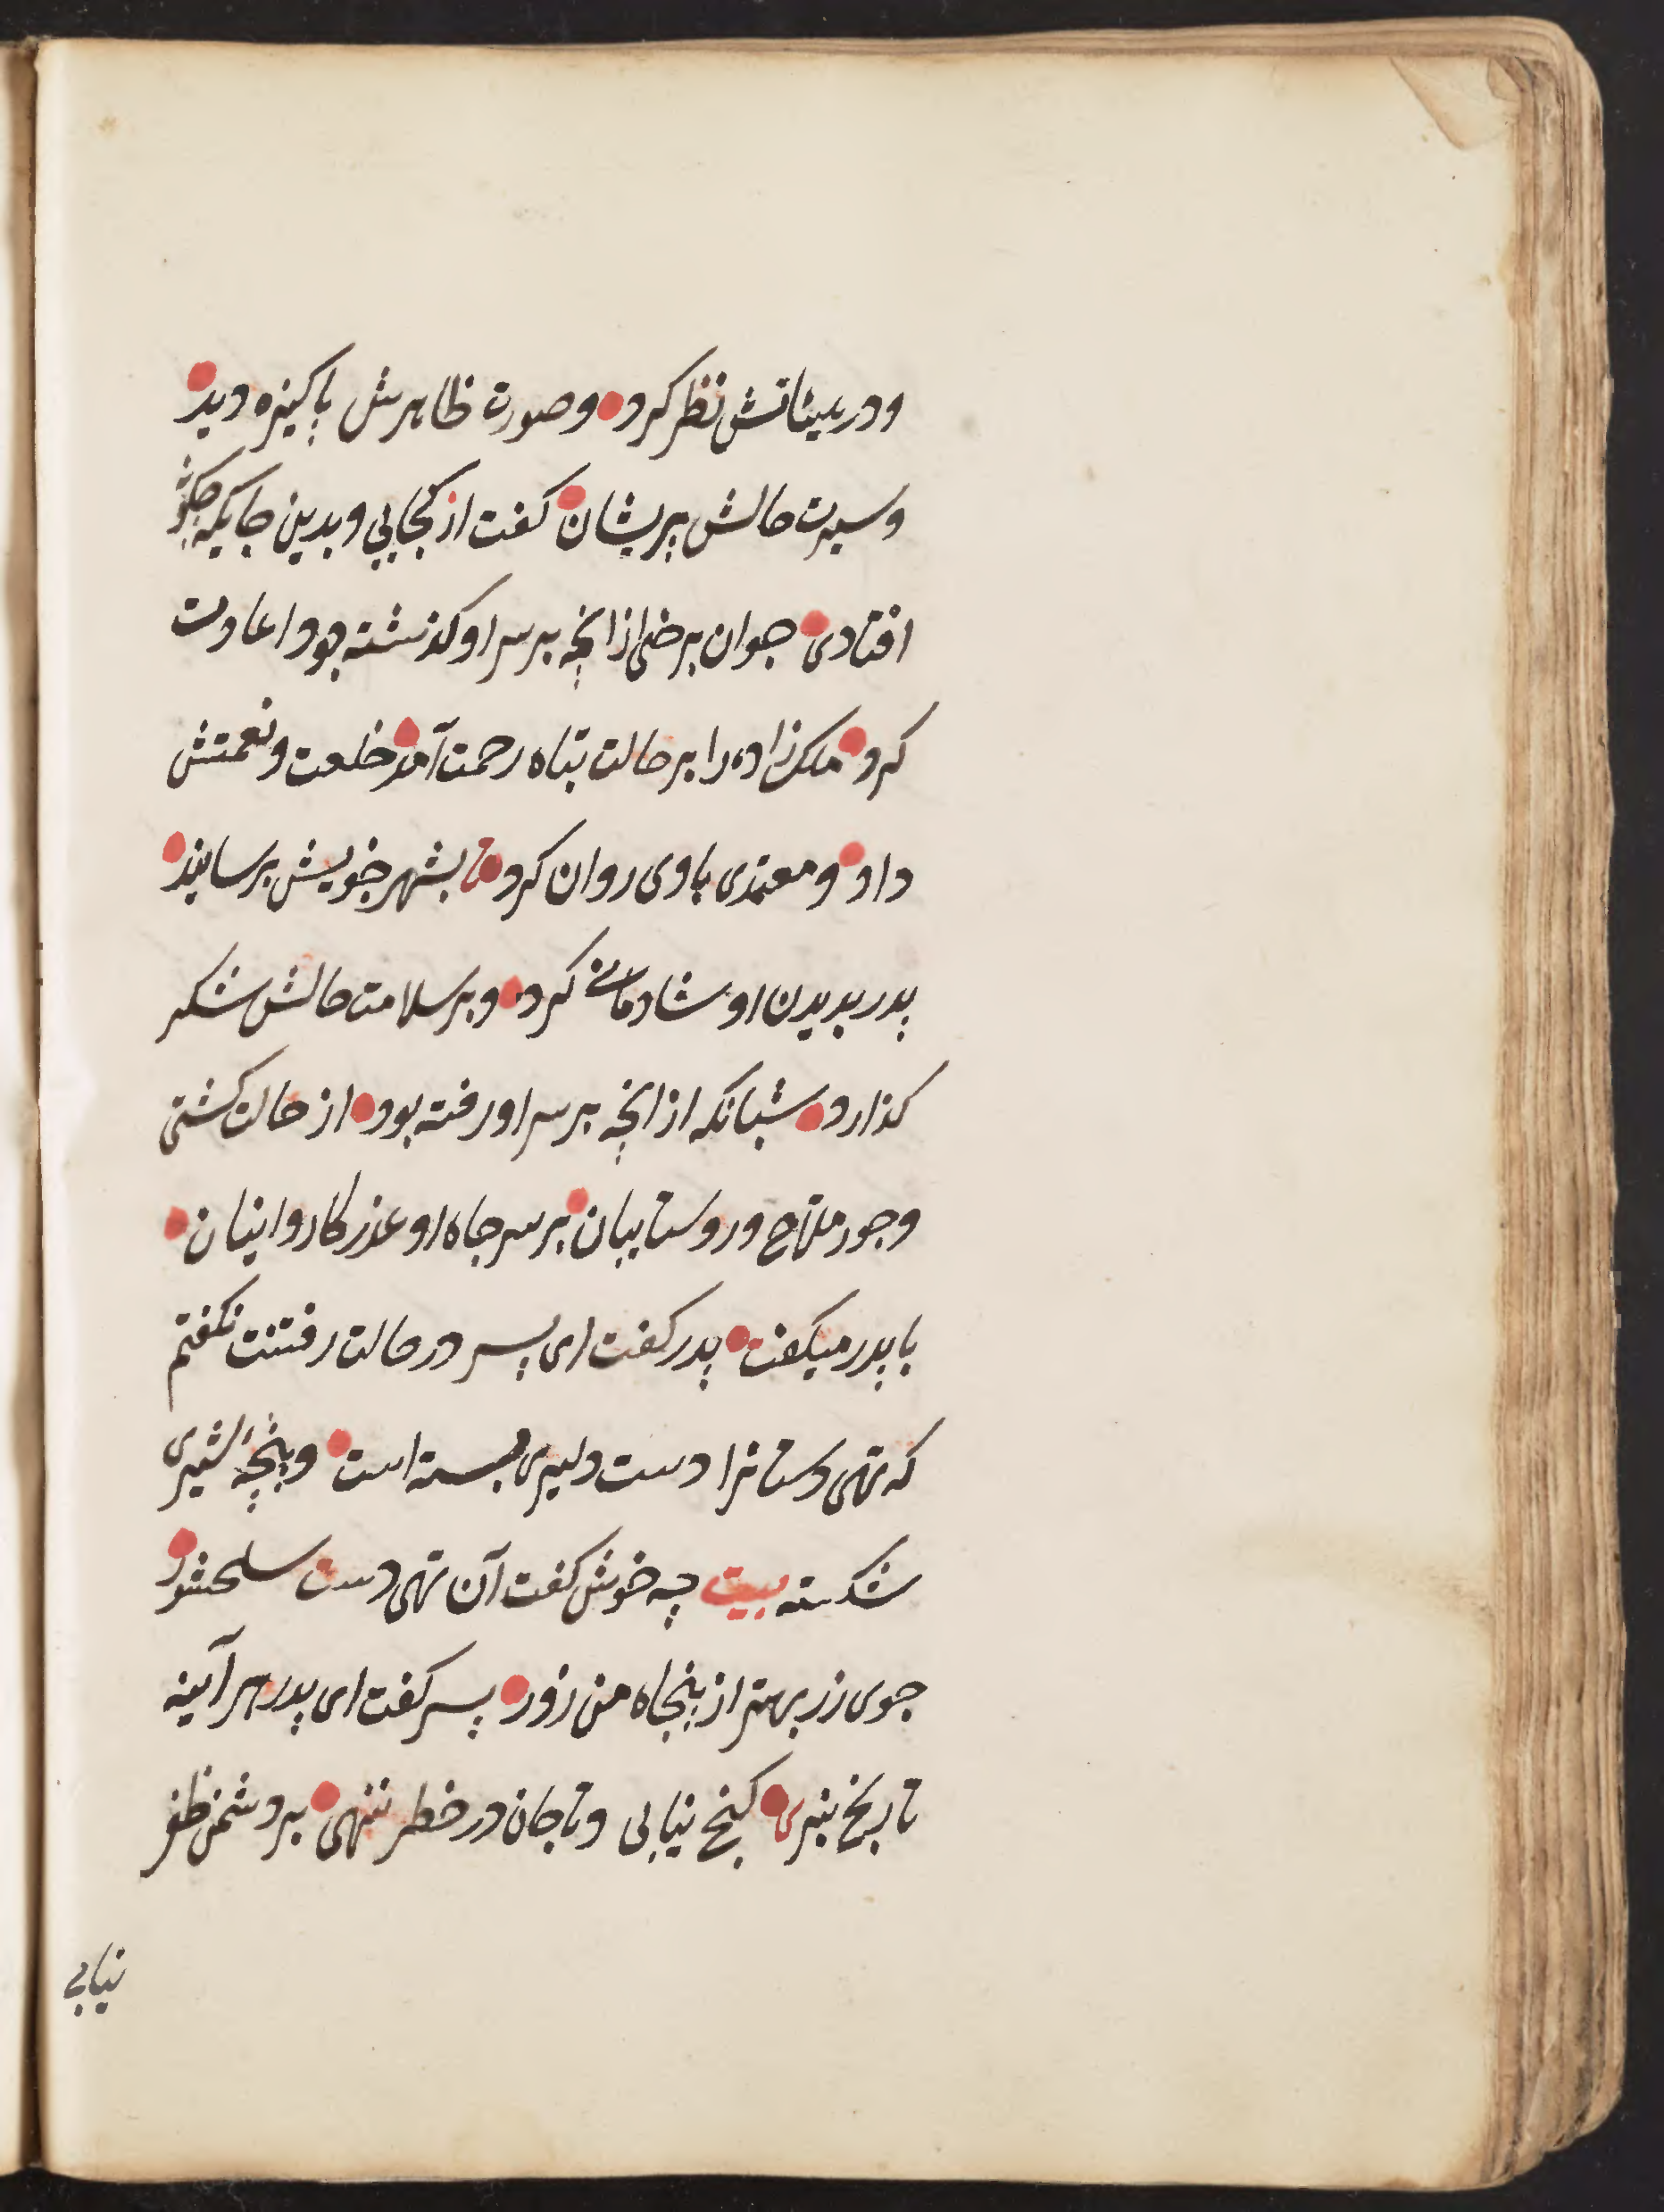 ودر میناتش نظر کرد وصورت ظاهرش پاکیزه دید
وسیرت حالش پریشان کفت از کجایی وبدین جایکه چکونه
افتادی جوان برخی از انچه بر سر او کذشته بود اعادت
کرد ملک زاده را بر حالت تباه رحمت آمد خلعت ونعمتش
داد ومعتمدی باوی روان کرد تا بشهر خویش برسانید
پدر بدیدن او شادمانی کرد وبر سلامت حالش شکر
کذارد شبانکه از انچه بر سر او رفته بود از حالت کشتی
وجور ملاح وروستاییان بر سر چاه او عذر کاروانیان
با پدر میکفت پدر کفت ای پسر در حالت رفتنت نکفتم
که تهی دستانرا دست دلیری بسته است وپنجهٔ شیری
شکسته بیت چه خوش کفت آن تهی دست سلحشور
جوی زر بهتر از پنجاه من زور پسر کفت ای پدر هر آینه
تا رنج نبری کنج نیابی وتا جان در خطر ننهی بر دشمن ظفر
نیابی